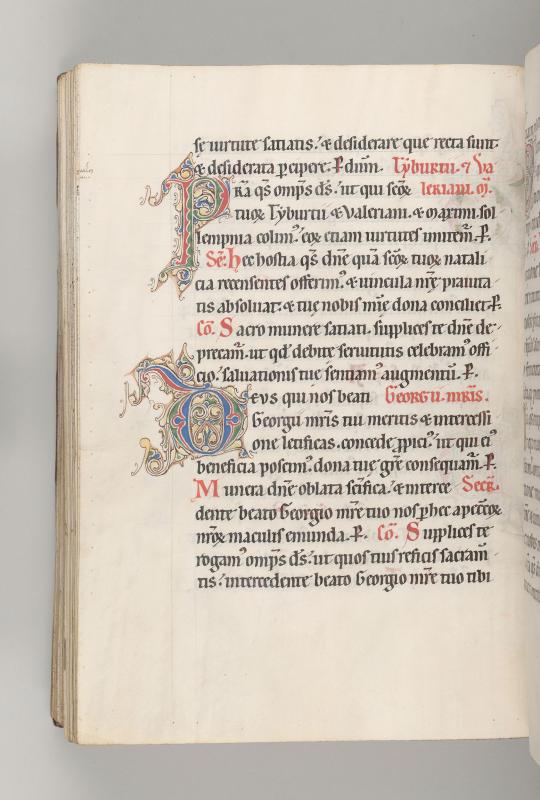 se uirtute satiatis. & desiderare que recta sunt
& desiderata ꝑcipere. P dnm̄. Tyburtii ⁊ Va
PRȨ̄A qs̄ omps̄ ds̄. ut qui scōꝝ leriani. M.
tuoꝝ Tyburtii & Valeriani. & Maximi sol
lempnia colim᾿. eoꝝ etiam uirtutes imitem̄. P.
Sec̄. hec hostia qs̄ dn̄e quā scōꝝ tuoꝝ natali
cia recensentes offerim᾿. & uincula nr̄ę prauita
tis absoluat. & tuę nobis mīe dona conciliet. P.
Cō. Sacro munere satiati. supplices te dn̄e de
precam̄. ut qd᾿ debitę seruitutis celebram᾿ offi
cio. saluationis tuę sentiam᾿ augmentū. P.
DEVS qui nos beati Georgii. mr̄is.
Georgii mr̄is tui meritis & intercessi
one letificas. concede ꝓpici᾿. ut qui ei᾿
beneficia poscim᾿. dona tuę grē consequam̄. P.
Munera dn̄e oblata scīfica. & interce Secr̄.
dente beato Georgio mr̄e tuo nos ꝑ hec a peccōꝝ
nr̄oꝝ maculis emunda. P. Cō. Supplices te
rogam᾿ omps̄ ds̄. ut quos tuis reficis sacram̄
tis. intercedente beato Georgio mr̄e tuo tibi